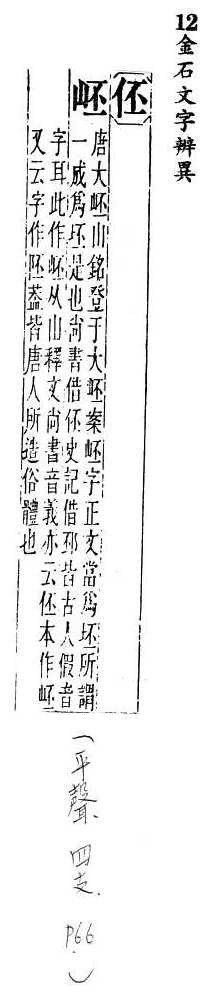 12金石文字辨異
伾
岯
唐大岯山銘登于大岯案岯字正文當爲坯所謂
一成爲坯是也尚書借伾史記借邳皆古人假音
字耳此作岯从山釋文尚書音義亦云伾本作岯
又云字作阫葢皆唐人所造俗體也
（平聲、四支. P66）